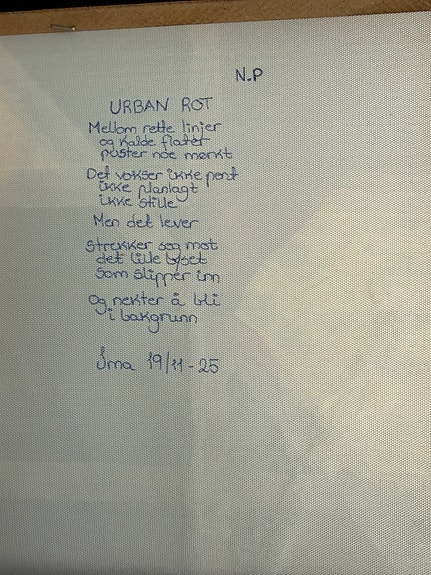 N.P
URBAN ROT
Mellom rette linjer
og kalde flater
puster noe mørkt
Det vokser ikke pent
ikke planlagt
ikke stille
Men det lever
Strekker seg mot
det lille lyset
som slipper inn
Og nekter å bli
i bakgrunn
19/11-25